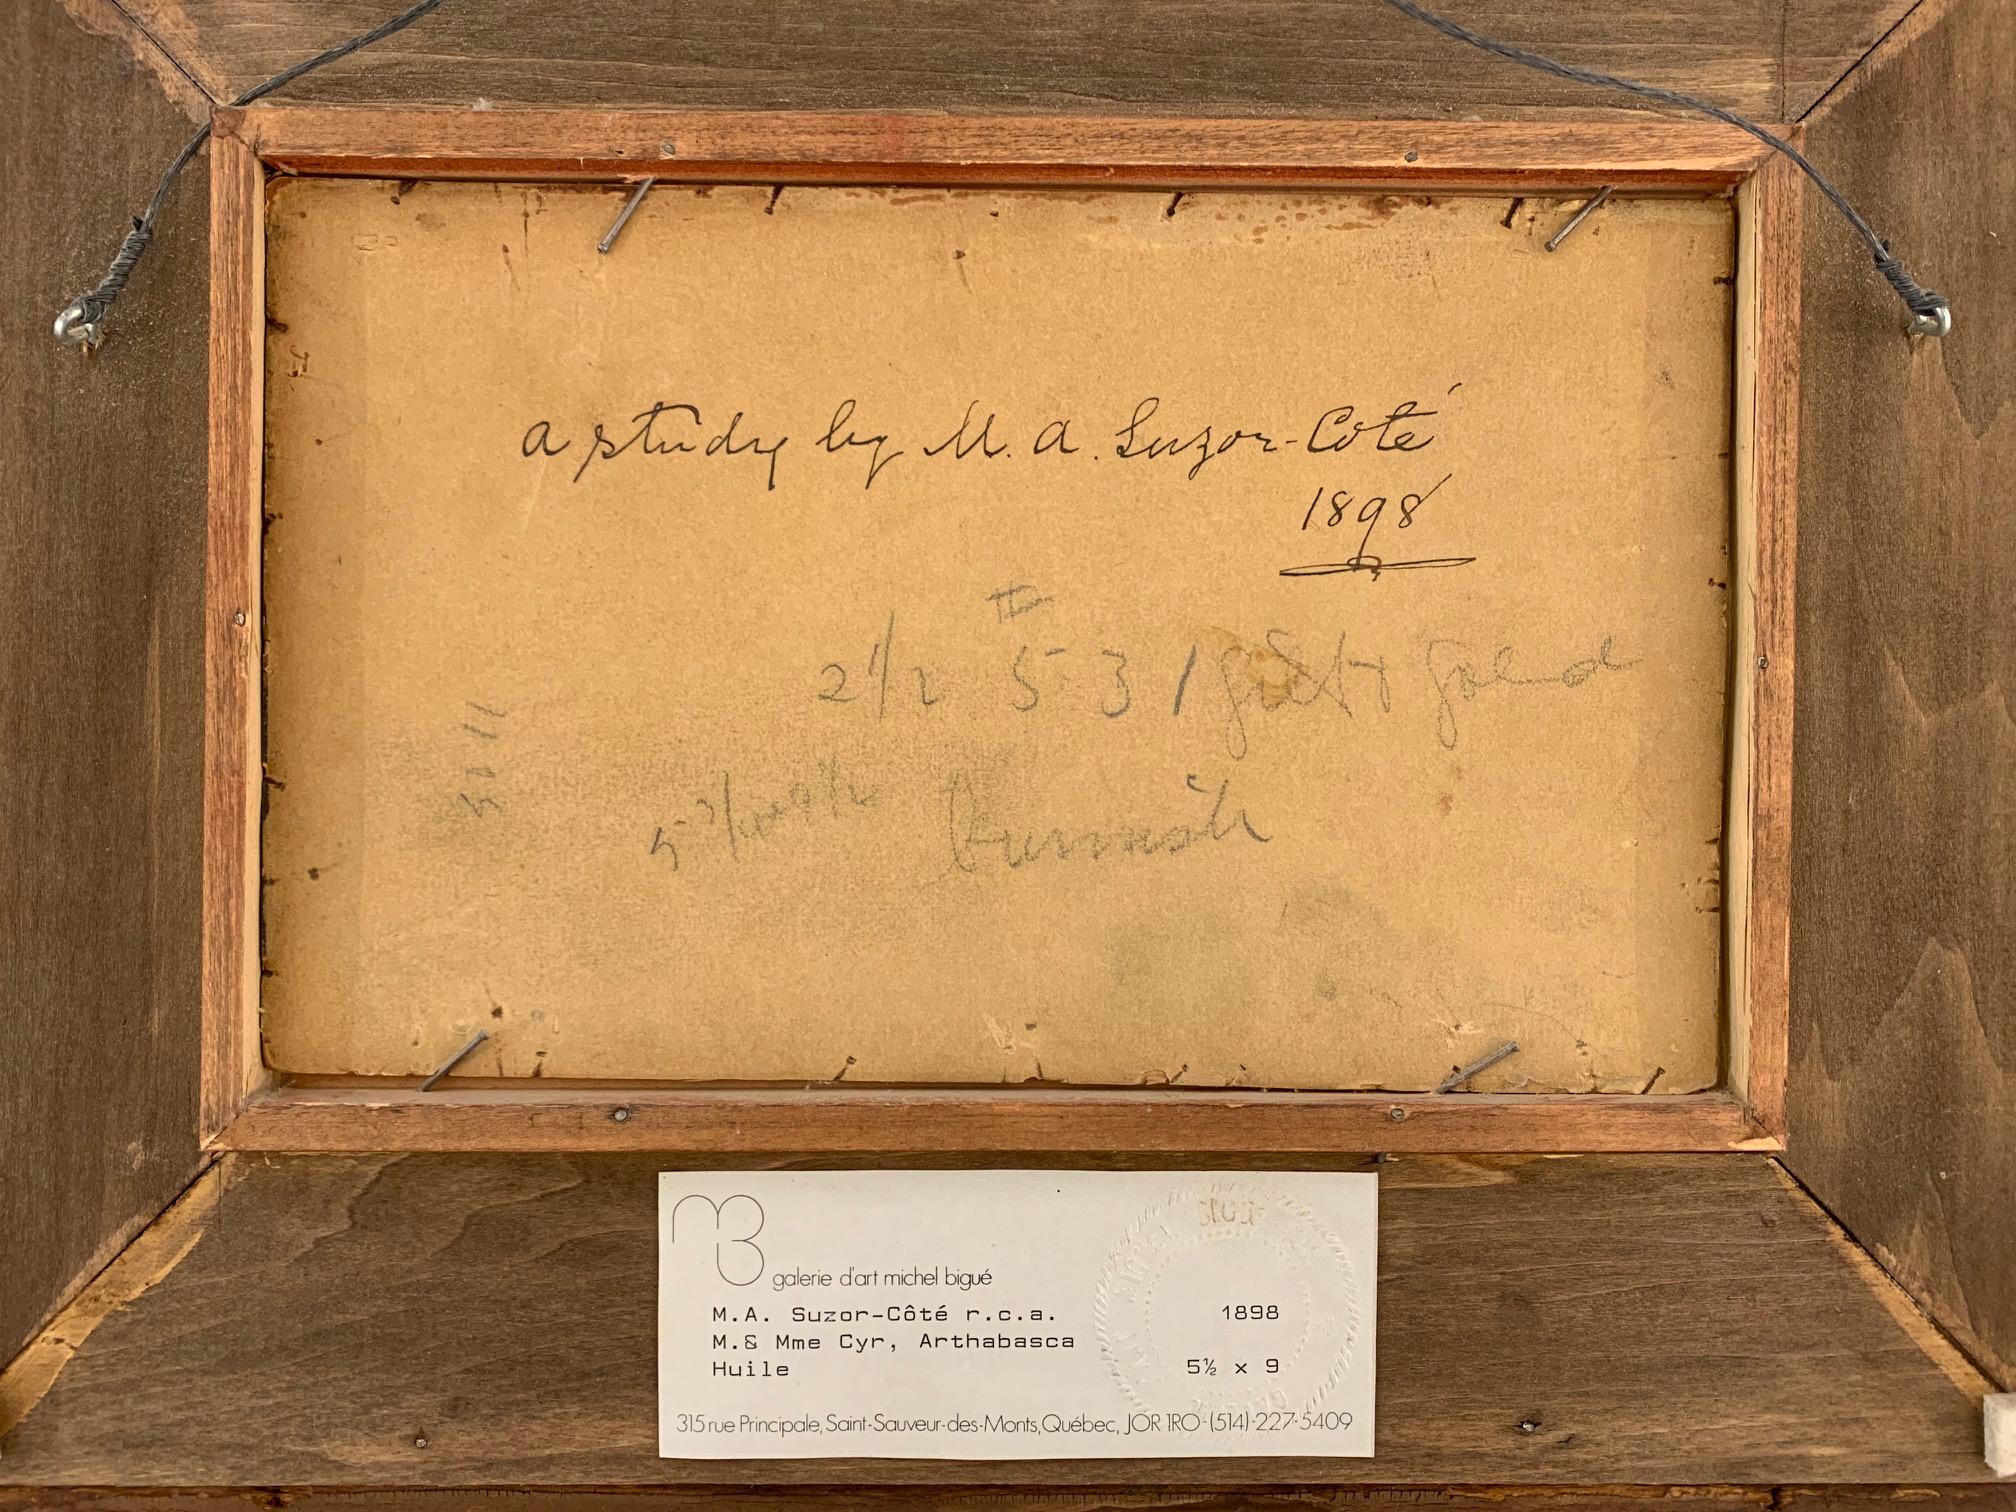 a study by M. A. Suzor-Coté
1898
II
2 1/2 5 3 1 gilt gold
galerie d'art michel bigué
M.A. Suzor-Côté r.c.a. 1898
M.& Mme Cyr, Arthabasca
Huile 5½ x 9
315 rue Principale, Saint-Sauveur-des-Monts, Québec, JOR 1RO - (514)-227-5409